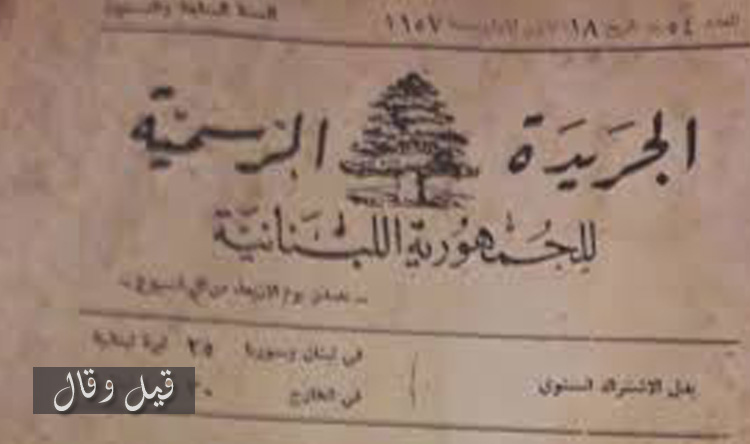 العدد ٥٤ تاريخ ١٨ سنة ١٩٥٧
السنة السابعة والتسعون
الجريدة الرسمية
للجمهورية اللبنانية
تصدر يوم الاربعاء من كل اسبوع
بدل الاشتراك السنوي
في لبنان وسوريا ٢٥ ليرة لبنانية
في الخارج
قيل وقال